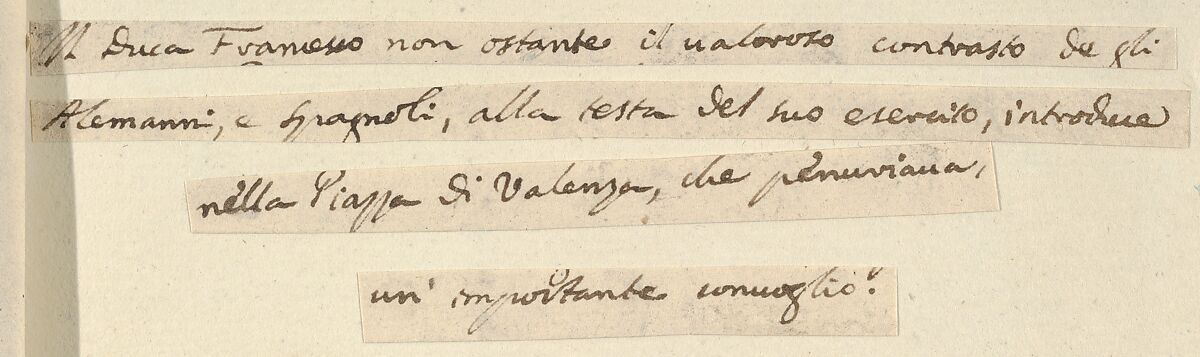 Il Duca Francesco non ostante il valoroso contrasto de gli
Alemanni, e Spagnoli, alla testa del suo esercito, introduce
nella Piazza di Valenza, che penuriava,
un' importante convoglio.